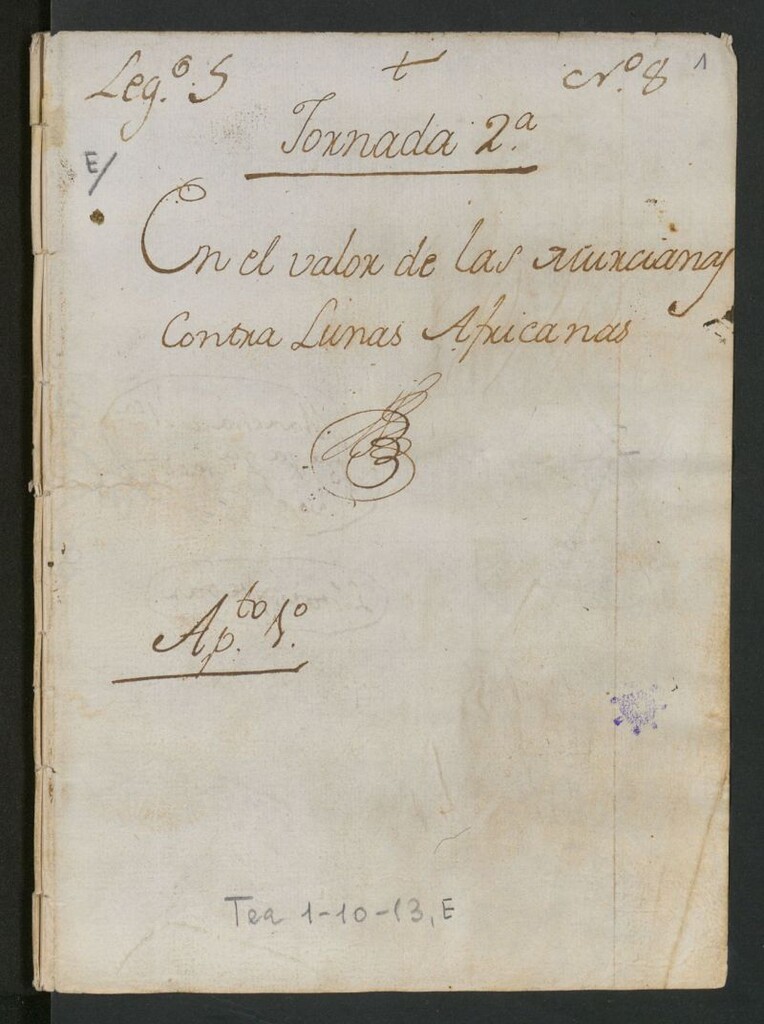 Leg.º 5 + Nº. 8 1
Jornada 2.ª
E/
En el valor de las Murcianas
Contra Lunas Africanas
Ap.to 1.º
Tea 1-10-13, E